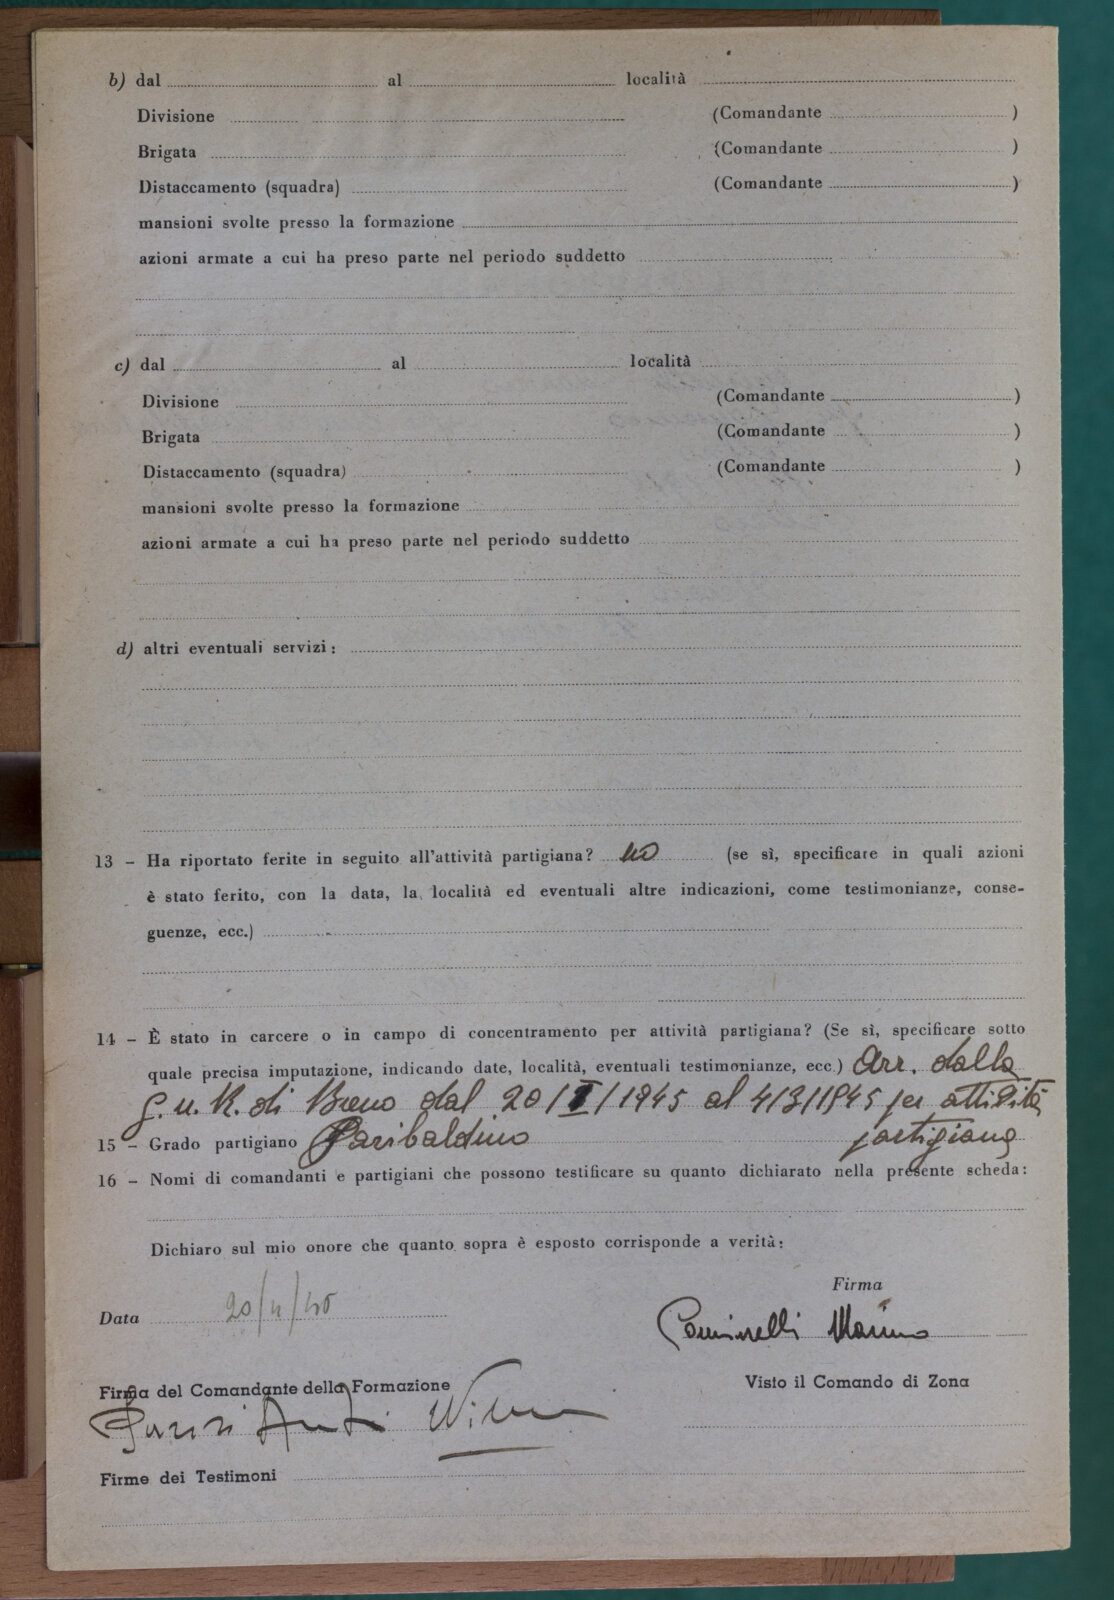 b) dal al località
Divisione (Comandante )
Brigata (Comandante )
Distaccamento (squadra) (Comandante )
mansioni svolte presso la formazione
azioni armate a cui ha preso parte nel periodo suddetto
c) dal al località
Divisione (Comandante )
Brigata (Comandante )
Distaccamento (squadra) (Comandante )
mansioni svolte presso la formazione
azioni armate a cui ha preso parte nel periodo suddetto
d) altri eventuali servizi:
13 - Ha riportato ferite in seguito all'attività partigiana? no (se sì, specificare in quali azioni
è stato ferito, con la data, la località ed eventuali altre indicazioni, come testimonianze, conse-
guenze, ecc.)
14 - È stato in carcere o in campo di concentramento per attività partigiana? (Se sì, specificare sotto
quale precisa imputazione, indicando date, località, eventuali testimonianze, ecc.) Arr. dalla
g.n.R. di Breno dal 20/I/1945 al 4/3/1945 per attività
15 - Grado partigiano Garibaldino partigiana
16 - Nomi di comandanti e partigiani che possono testificare su quanto dichiarato nella presente scheda:
Dichiaro sul mio onore che quanto sopra è esposto corrisponde a verità:
Firma
Data
Marino
Firma del Comandante della Formazione Visto il Comando di Zona
Firme dei Testimoni